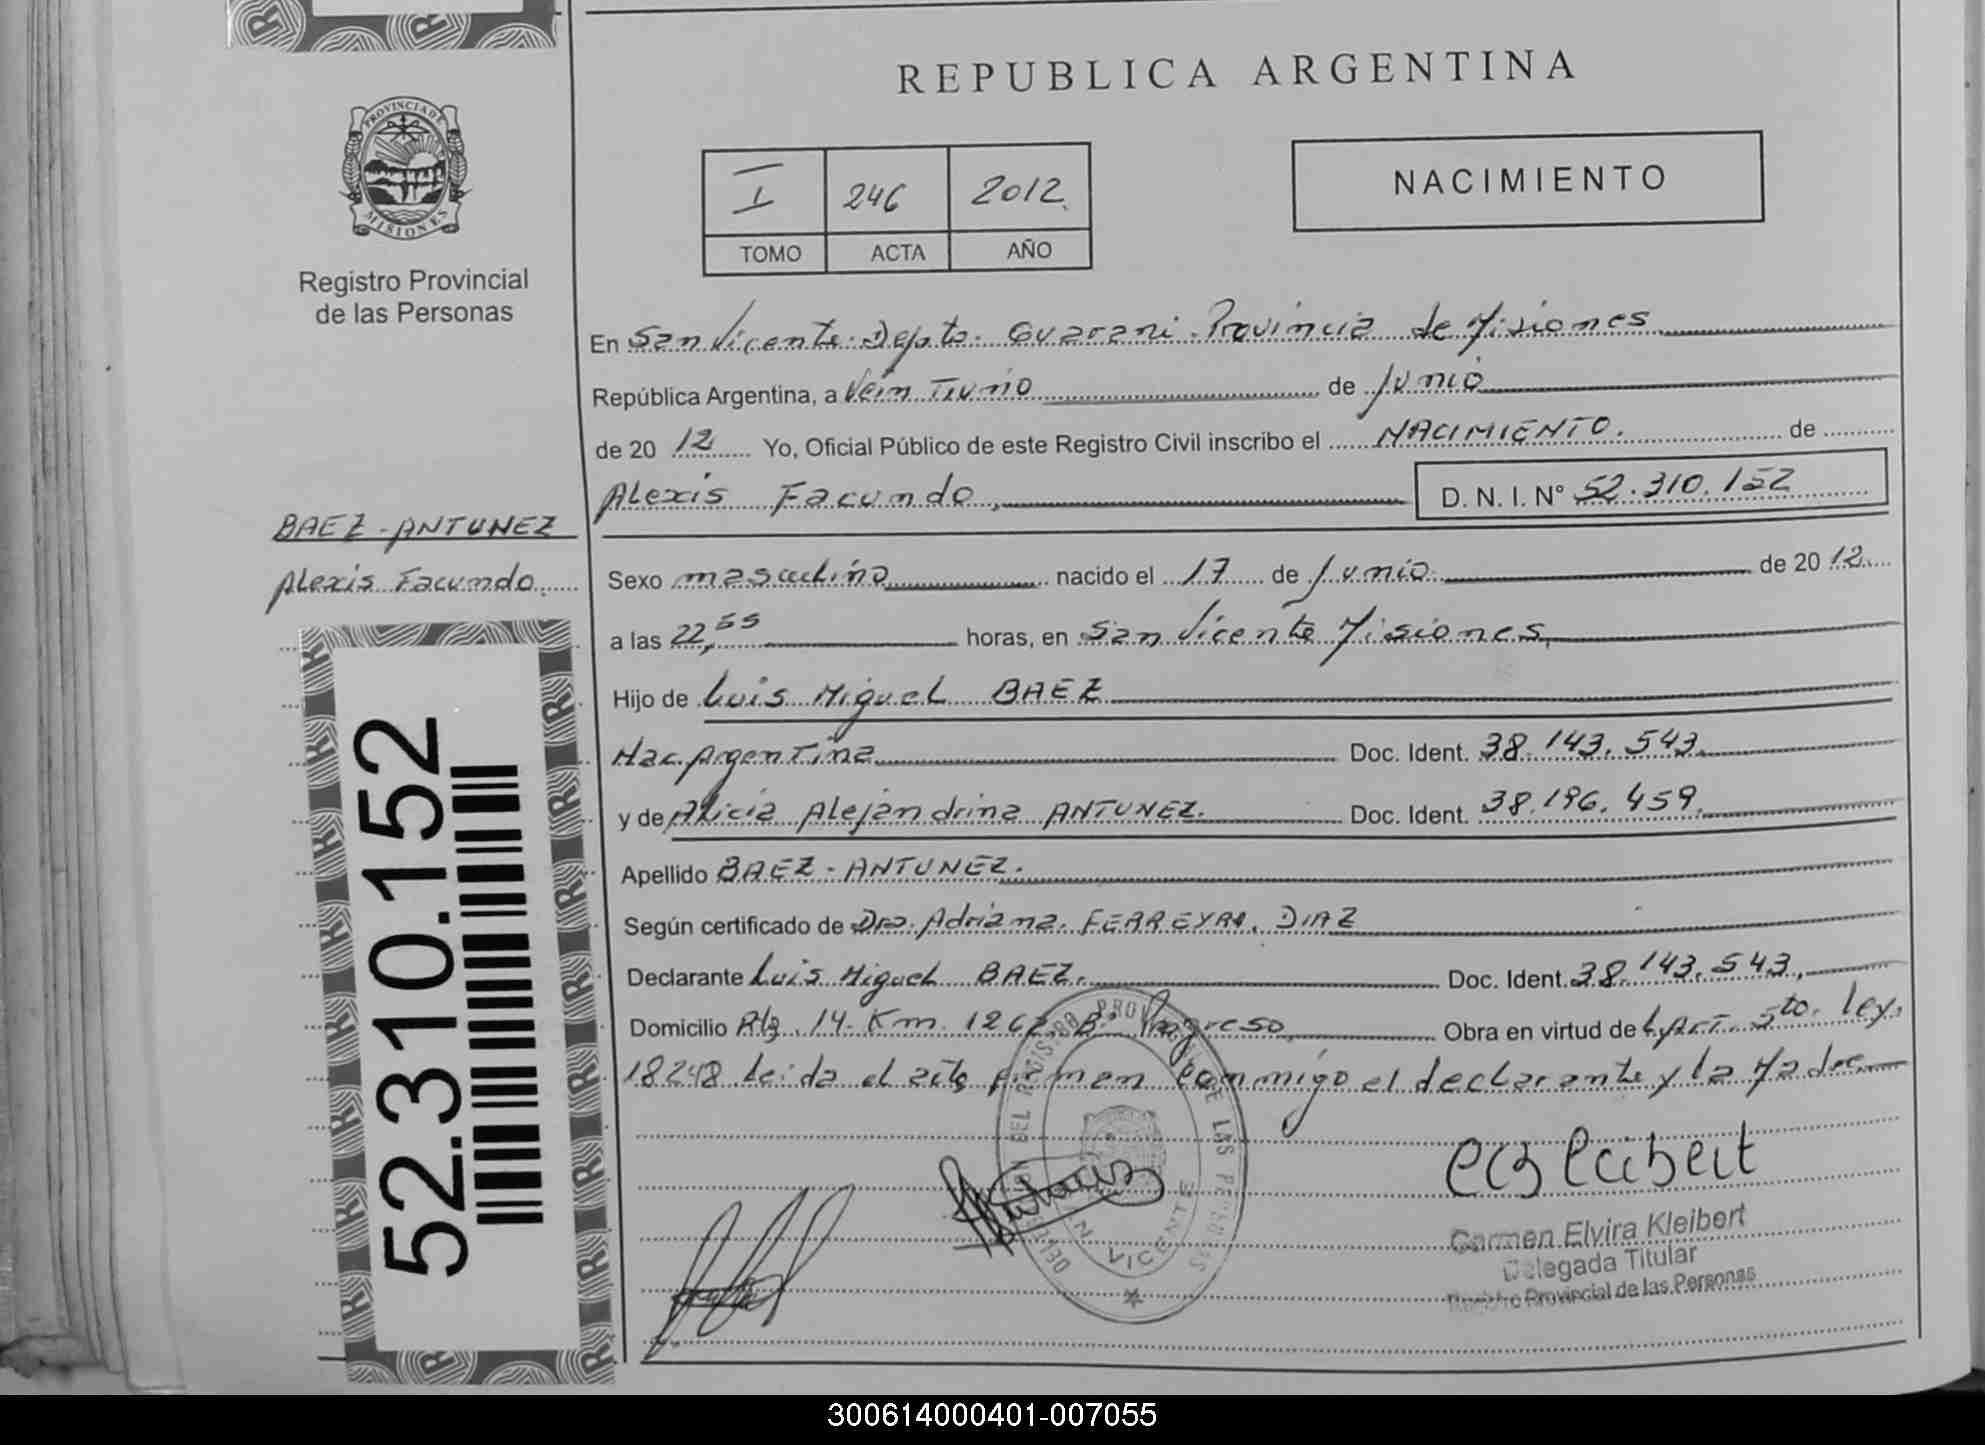 PROVINCIA DE
MISIONES
Registro Provincial
de las Personas
REPUBLICA ARGENTINA
I 246 2012
TOMO ACTA AÑO
NACIMIENTO
En San Vicente. Depto. Guarani. Provincia de Misiones
República Argentina, a Vein Tiuno de Junio
de 20 12 Yo, Oficial Público de este Registro Civil inscribo el NACIMIENTO. de
Alexis Facundo, D. N. I. N° 52.310.152
BAEZ-ANTUNEZ
Alexis Facundo.
Sexo masculino nacido el 17 de Junio de 20 12
a las 22,55 horas, en San Vicente Misiones,
Hijo de Luis Miguel BAEZ
Nac. Argentina Doc. Ident. 38.143.543.
y de Alicia Alejandrina ANTUNEZ. Doc. Ident. 38.196.459.
Apellido BAEZ-ANTUNEZ.
Según certificado de Dra. Adriana. FERREYRA. DIAZ
Declarante Luis Miguel BAEZ. Doc. Ident. 38.143.543,
Domicilio Rta. 14. Km. 1267 B° Ingreso Obra en virtud de L. Art. 5to. ley.
18248 Leida el acta firman conmigo el declarante y la Madre
52.310.152
DELEGACION DEL REGISTRO PROVINCIAL DE LAS PERSONAS
SAN VICENTE
Carmen Elvira Kleibert
Delegada Titular
Registro Provincial de las Personas
300614000401-007055